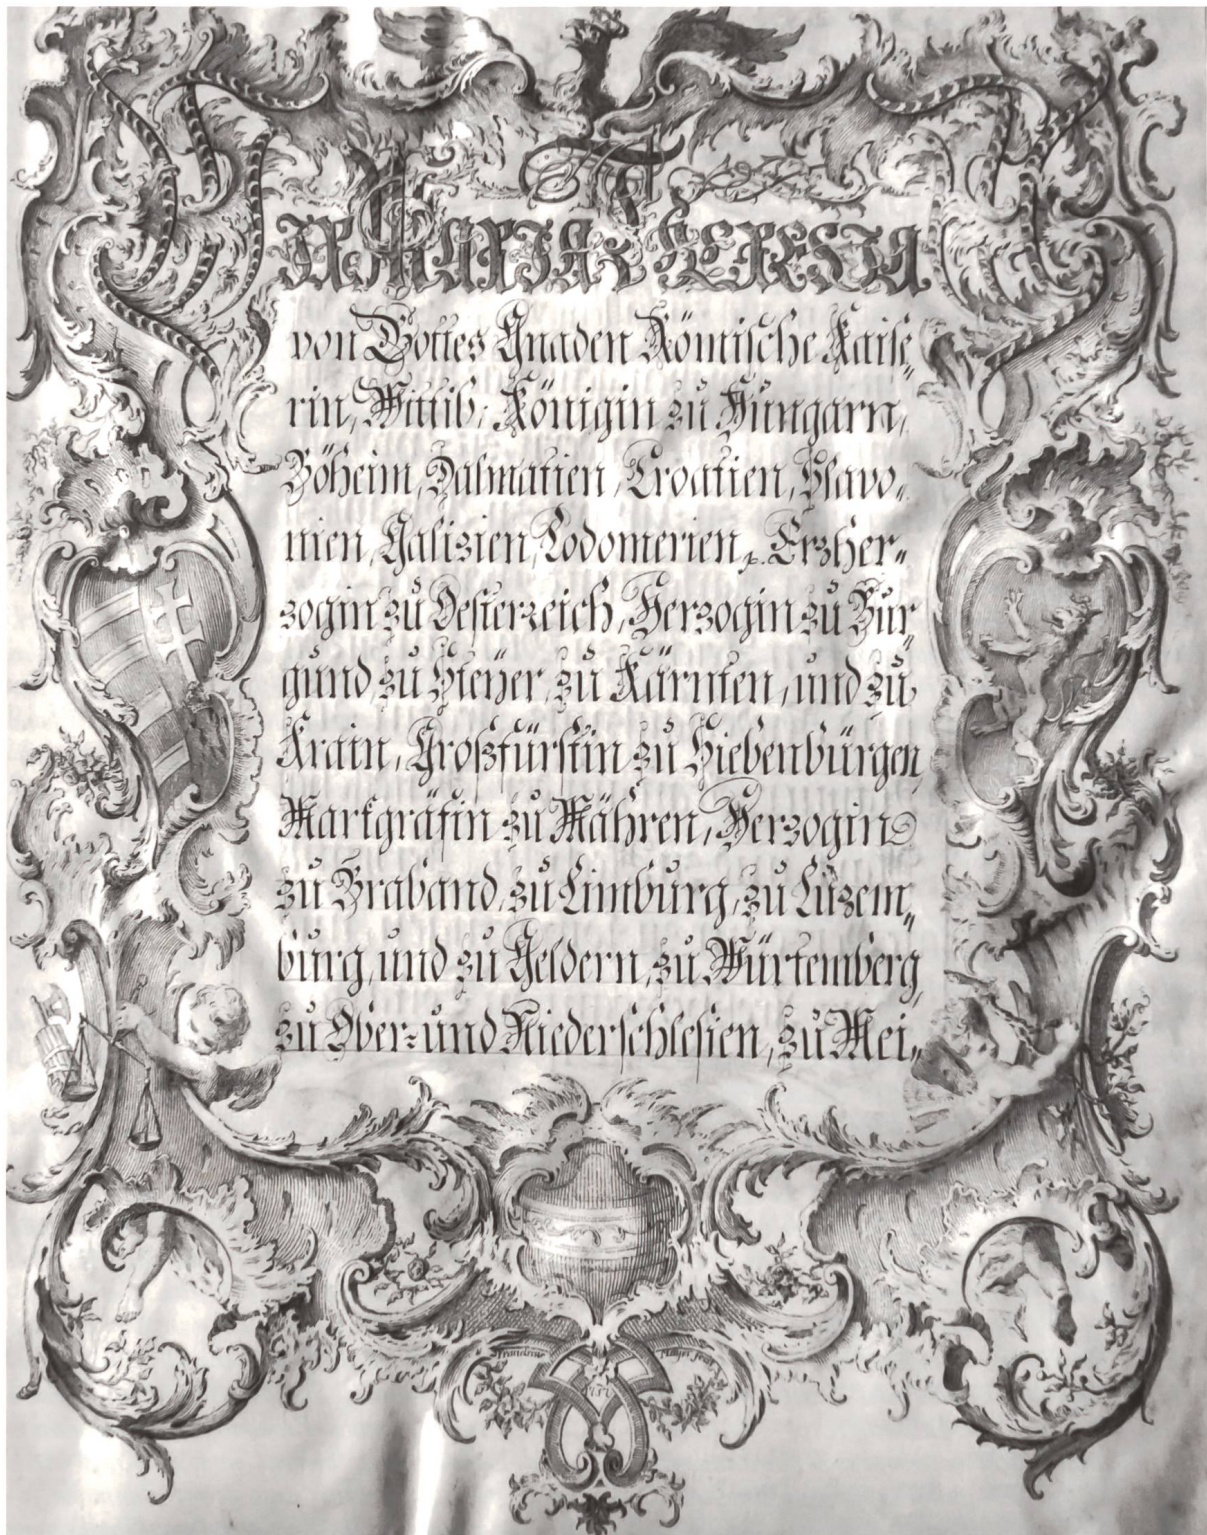 WIR MARIA THERESIA
von Gottes Gnaden Römische Kaise„
rin, Wittib, Königin zu Hungarn,
Böheim, Dalmatien, Croatien, Slavo„
nien, Galizien, Lodomerien, ꝛc. Erzher„
zogin zu Oesterreich, Herzogin zu Bur„
gund, zu Steÿer, zu Kärnten, und zu
Krain, Großfürstin zu Siebenbürgen
Markgräfin zu Mähren, Herzogin
zu Braband, zu Limburg, zu Luzem„
burg, und zu Geldern, zu Würtemberg,
zu Ober- und Niederschlesien, zu Mei„